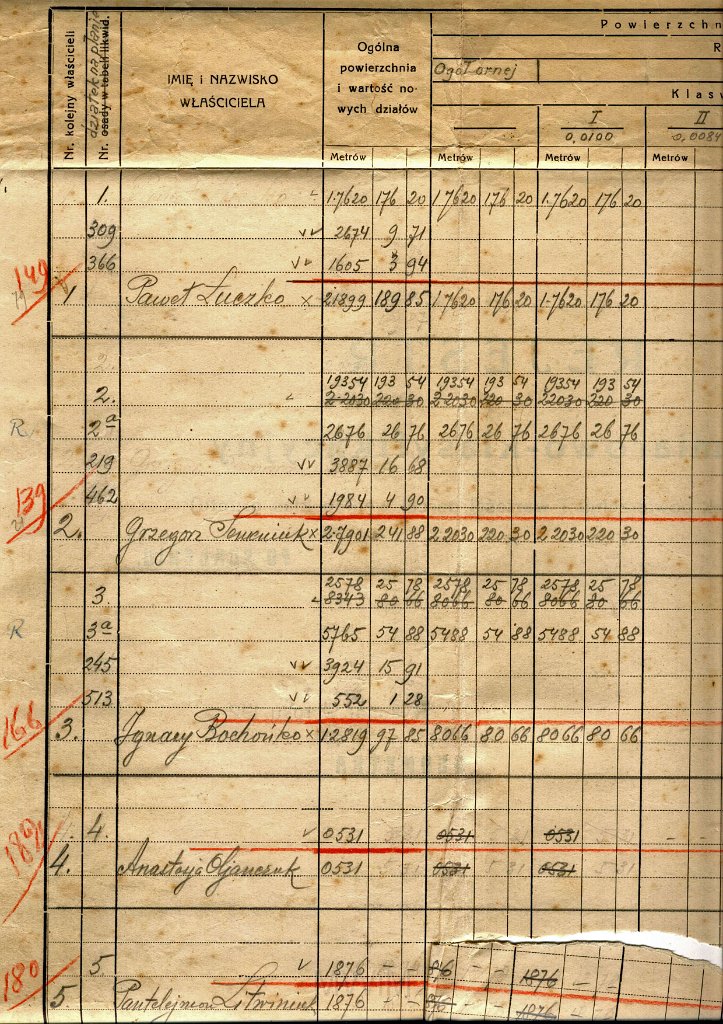 Powierzchn
R
Nr. kolejny właścicieli
działek na planie
Nr. osady w tabeli likwid.
IMIĘ i NAZWISKO WŁAŚCICIELA
Ogólna powierzchnia i wartość nowych działów
Ogół ornej
Klasy
I 0,0100
II 0,0084
Metrów Metrów Metrów Metrów
1. 1.7620 176 20 1.7620 176 20 1.7620 176 20
309 2674 9 71
366 1605 3 94
149
1 Paweł Łuczko x 21899 189 85 1.7620 176 20 1.7620 176 20
2.
19354 193 54 19354 193 54 19354 193 54
2. 2.2030 220 30 2.2030 220 30 22030 220 30
R 2a 2676 26 76 2676 26 76 2676 26 76
219 3887 16 68
462 1984 4 90
139
2. Grzegorz x 2.7901 241 88 2.2030 220 30 2.2030 220 30
2578 25 78 2578 25 78 2578 25 78
3. 8343 80 66 8066 80 66 8066 80 66
R 3a 5765 54 88 5488 54 88 5488 54 88
245 3924 15 91
513 552 1 28
166
3. Ignacy Bochońko x 12819 97 85 8066 80 66 8066 80 66
4. 0531 0531 0531 - -
189
4. Anastazja Oljanczuk 0531 0531 0531
5. 1876 - - 876 - - 1876 - -
180
5. Pantelejmon Litwiniuk 1876 - - 876 - - 1876 - -